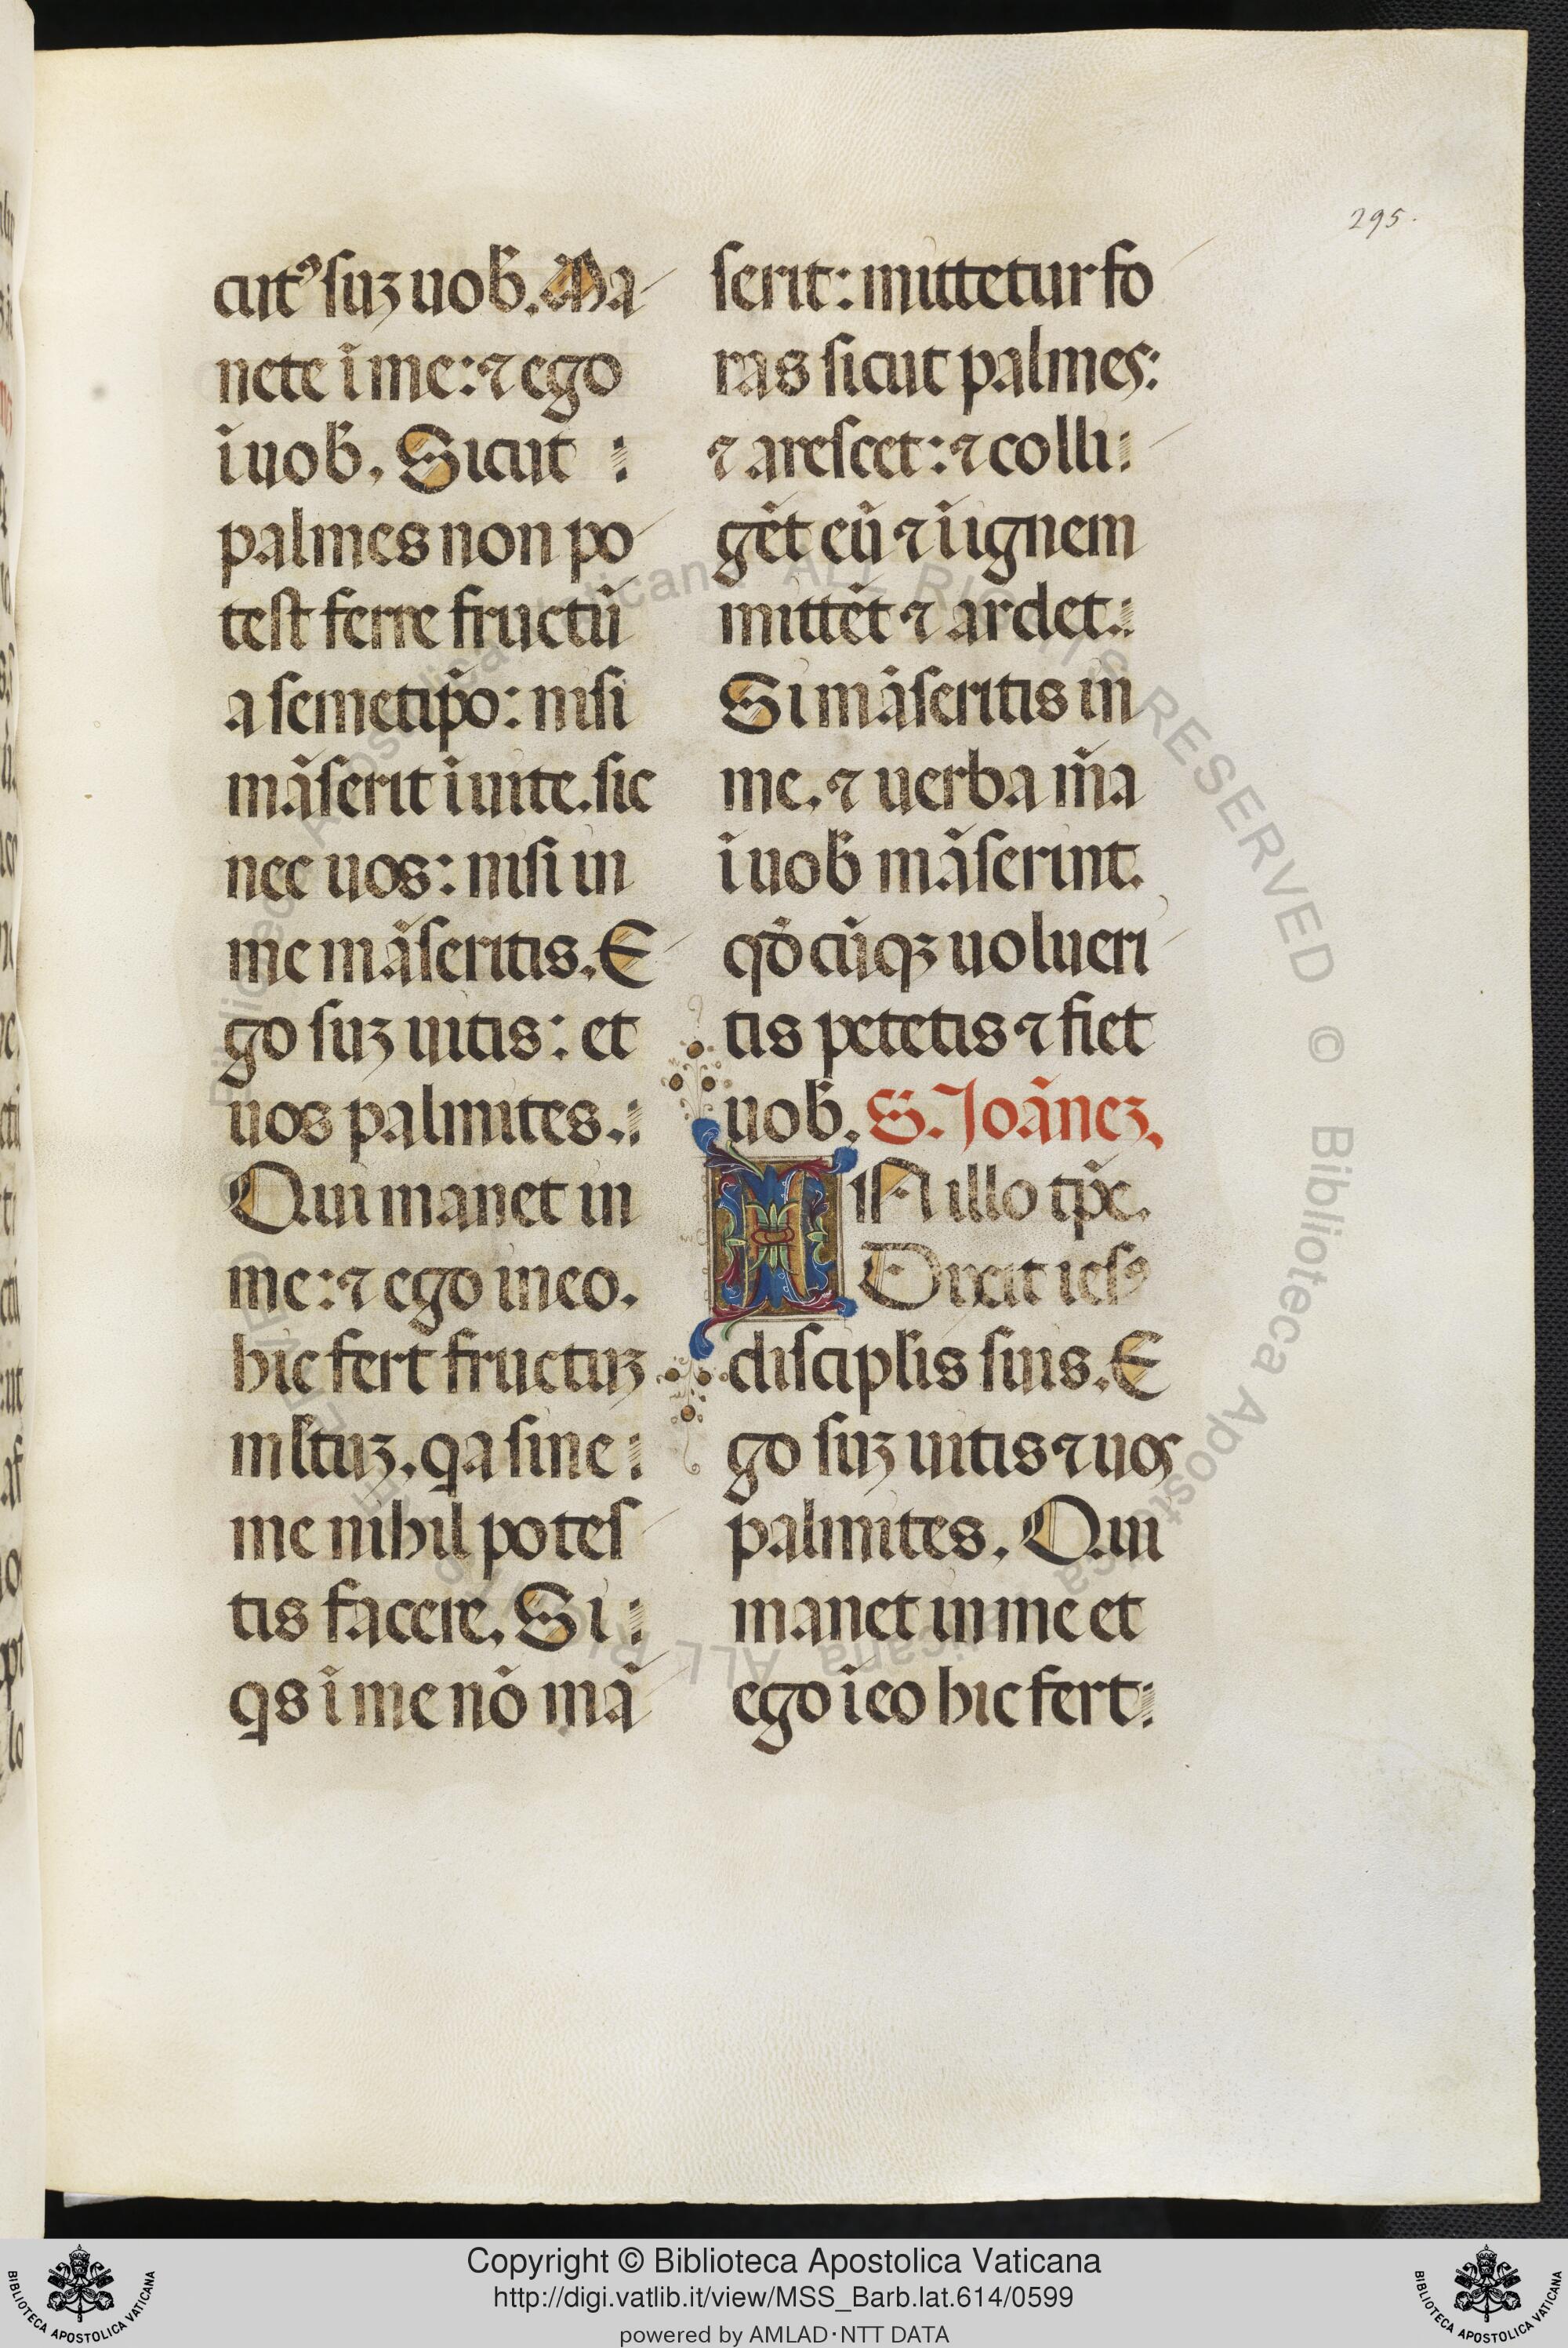 295.
cut᷒ suꝫ uob̃. Ma
nete ĩ me: ⁊ ego
ĩ uob̃. Sicut
palmes non po
test ferre fructũ
a semetip̃o: nisi
mãserit ĩ uite. sic
nec uos: nisi in
me mãseritis. E
go suꝫ uitis: et
uos palmites.
Qui manet in
me: ⁊ ego in eo.
hic fert fructuꝫ
ml̃tuꝫ. qa sine
me nihil potes
tis facere. Si
qs ĩ me nõ mã
serit: mittetur fo
ras sicut palmes:
⁊ arescet: ⁊ colli
gẽt eũ ⁊ ĩ ignem
mittẽt ⁊ ardet.
Si mãseritis in
me. ⁊ uerba m̃a
ĩ uob̃ mãserint.
qđ cũqꝫ uolueri
tis petetis ⁊ fiet
uob̃. S. Joãneꝫ.
IN illo tp̃e.
Dixit iesꝰ
discipl̃is suis. E
go suꝫ uitis ⁊ uos
palmites. Qui
manet in me et
ego ĩ eo hic fert
Biblioteca Apostolica Vaticana ALL RIGHTS RESERVED ©
Copyright © Biblioteca Apostolica Vaticana
http://digi.vatlib.it/view/MSS_Barb.lat.614/0599
powered by AMLAD·NTT DATA
BIBLIOTECA APOSTOLICA VATICANA
BIBLIOTECA APOSTOLICA VATICANA